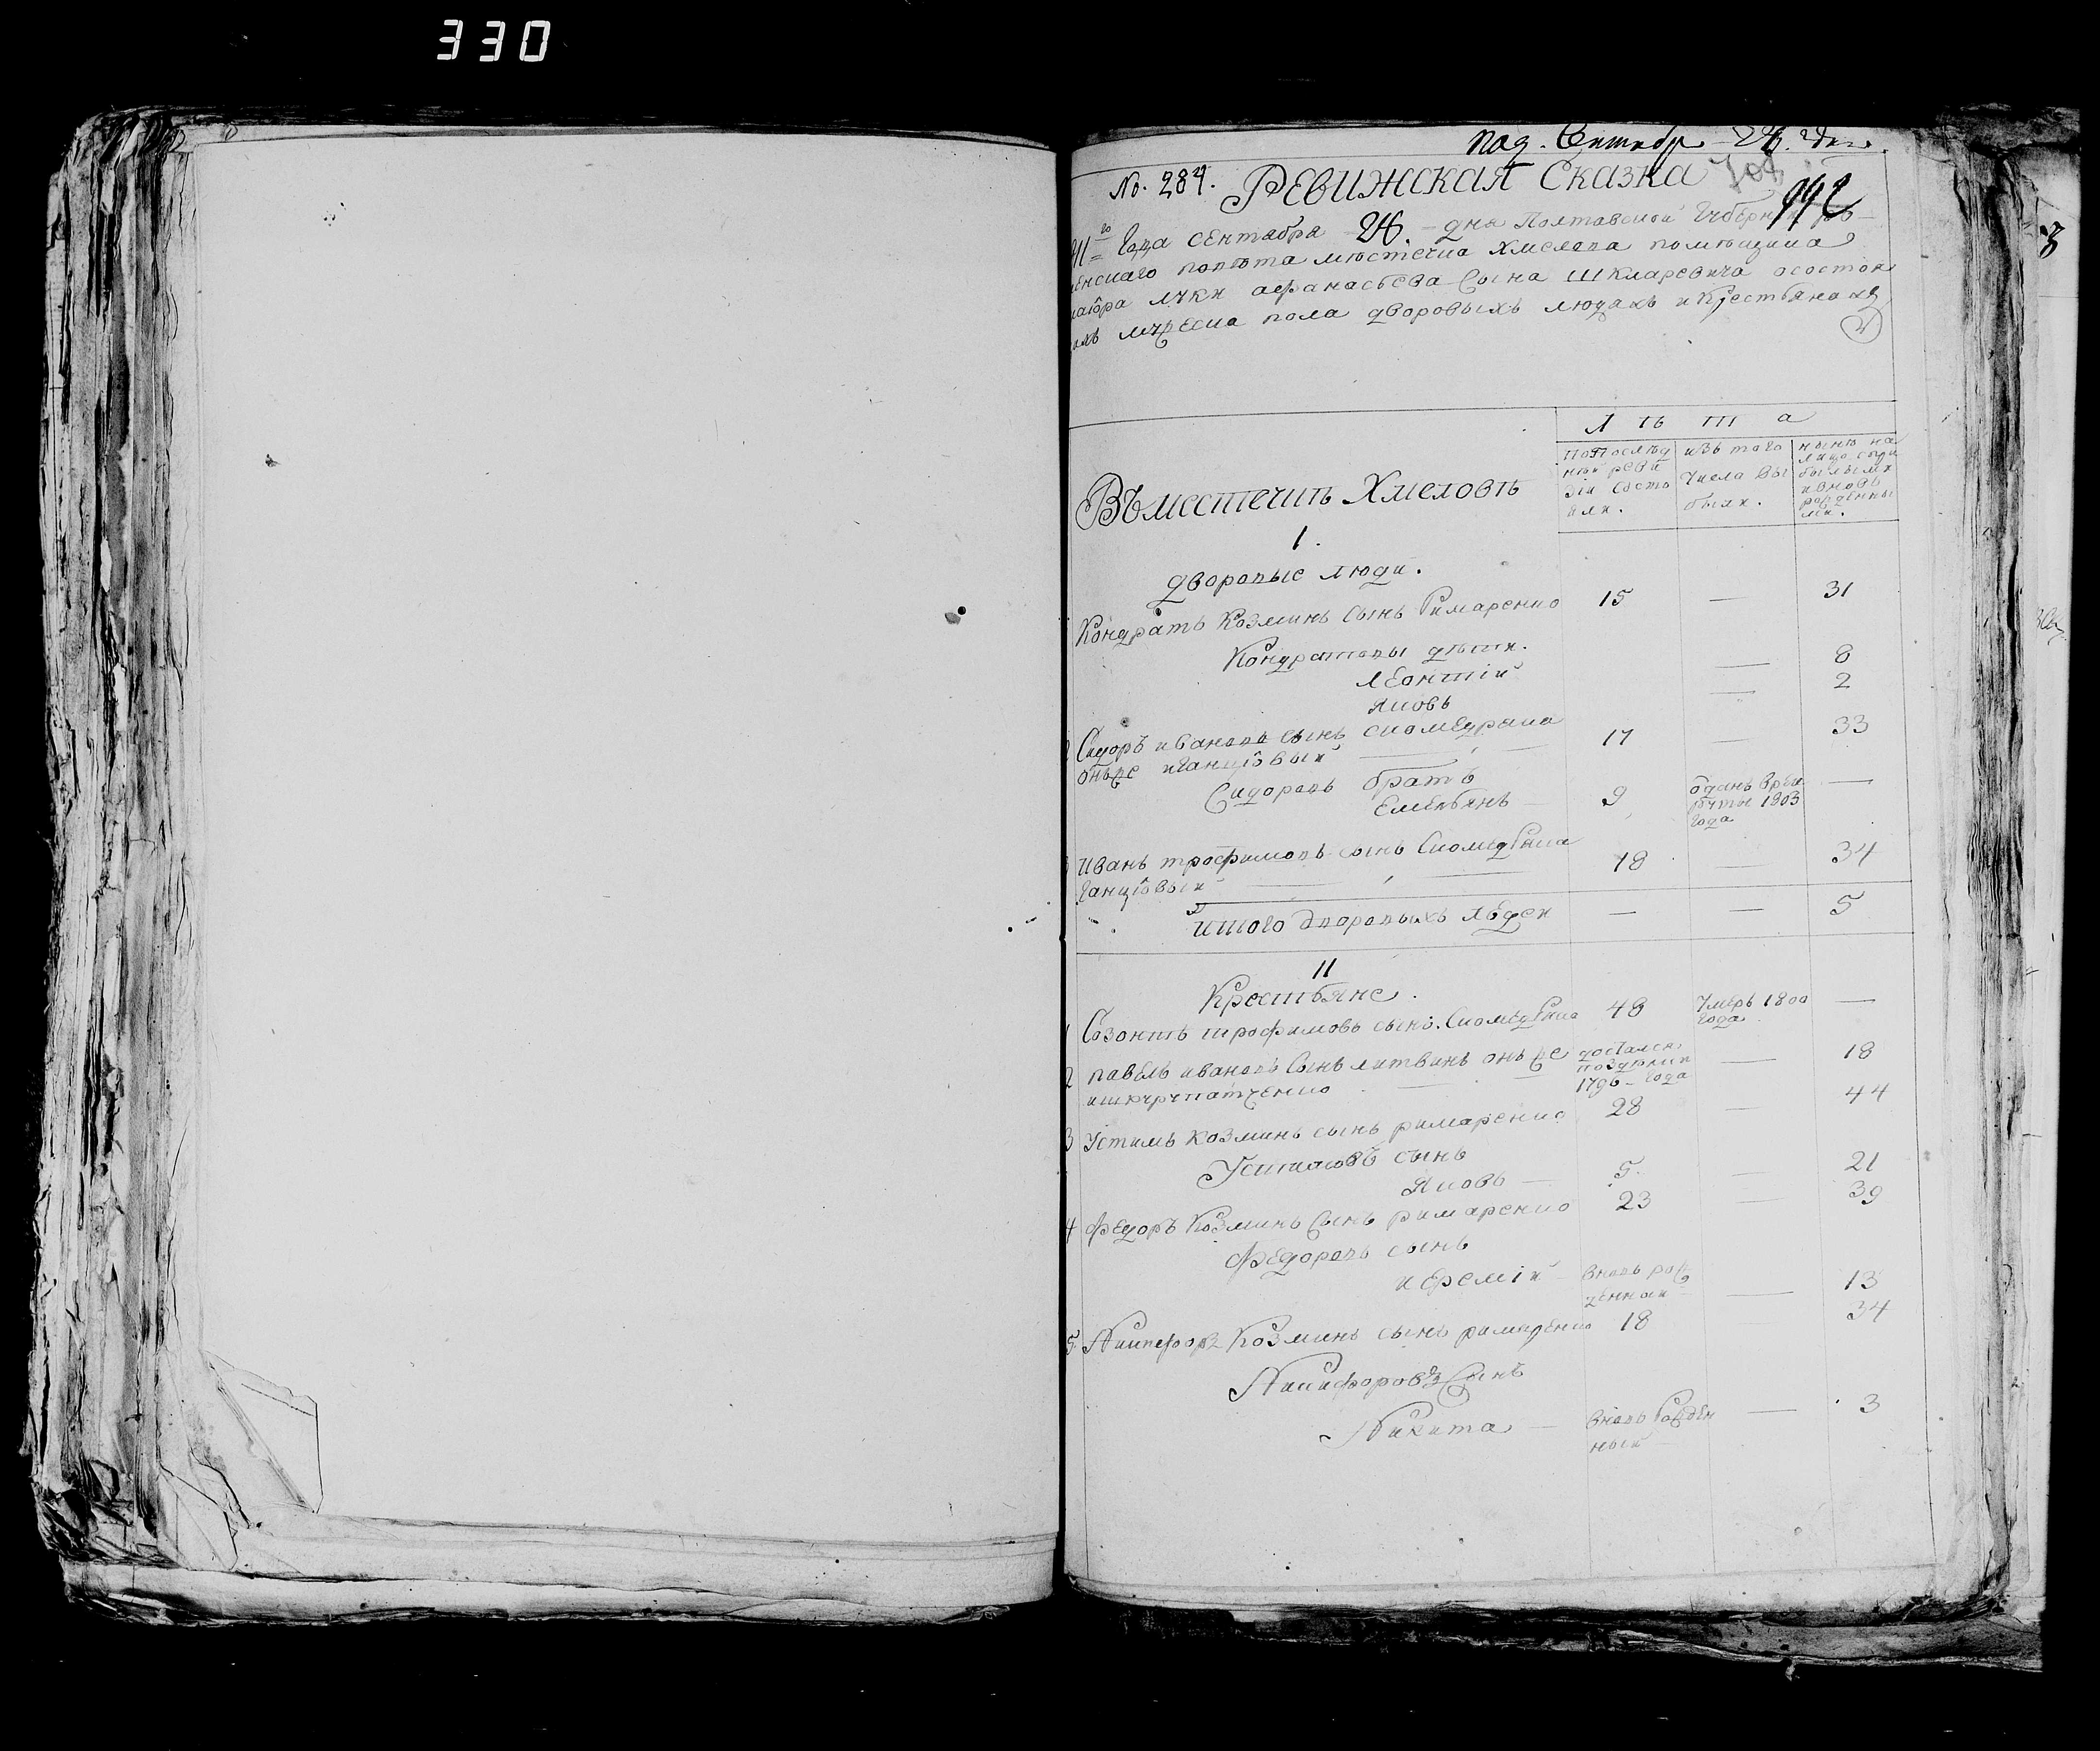 330
под. Сентябр 26. дня.
№. 284. РЕВИЖСКАЯ Сказка
Года сентабра 26. дня Полтавской Губернїи
енскаго повѣта мѣстечка Хмелова помѣщика
маіора луки афанасьева сына Шкларевича осостоя
ихъ мужеска пола дворовыхъ людяхъ и Крестьянахъ
Лѣта
Въ местечкѣ Хмеловѣ
Попослѣд изъ того нынѣ на
ней реви числа вы лицо
зіи состо были.
яли.
1.
дворовые люди.
Кондратъ Козминъ сынъ Римаренко 15 — 31
Кондратовы дѣти.
Леонтій — 8
Яковъ — 2
2 Сидоръ Ивановъ сынъ 17 — 33
онъже Ганцовый
Сидоровъ братъ
Емельянъ 9 —
отданъ в рек
руты 1803
года
Иванъ трофимовъ сынъ 18 — 34
Ганцовый
итого дворовыхъ людей — — 5
11
Крестьяне.
1 Созонтъ трофимовъ сынъ 48 Умеръ 1800 —
года
2 павелъ ивановъ сынъ литвинъ онъже достался — 18
1796 года
3 Устимъ Козминъ сынъ римаренко 28 — 44
Устимовъ сынъ
Яковъ — 5. — 21
4 Федоръ Козминъ сынъ римаренко 23 — 39
Федоровъ сынъ
иеремій вновь рож — 13
денной
5 Никифоръ Козминъ сынъ римаренко 18 34
Никифоровъ Сынъ
Никита — вновь рожден — 3
ный